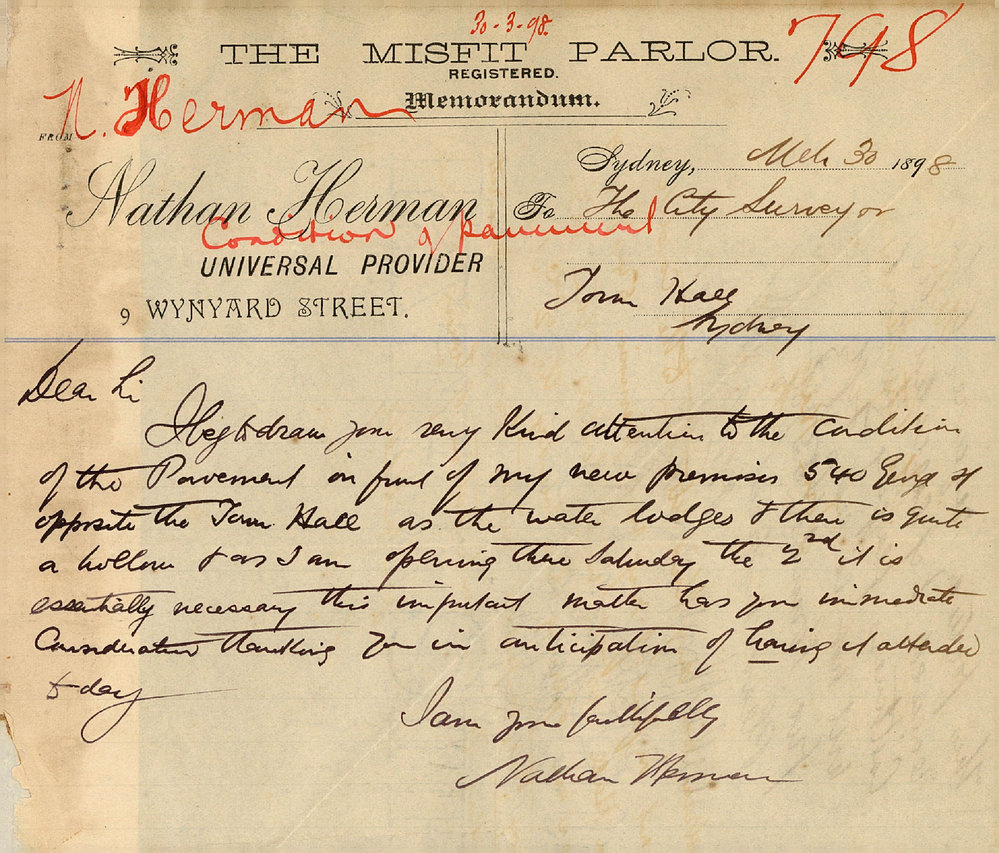 30-3-98.
THE MISFIT PARLOR.
798
REGISTERED.
Memorandum.
FROM
N. Herman
Sydney, Mch 30 1898
Nathan Herman
To The City Surveyor
Condition of pavement
UNIVERSAL PROVIDER
9 WYNYARD STREET.
Town Hall
Sydney
Dear Sir
I beg to draw your very Kind attention to the condition
of the Pavement in front of my new premises 540 George St
opposite the Town Hall as the water lodges & there is quite
a hollow & as I am opening there Saturday the 2nd it is
essentially necessary this important matter has your immediate
Consideration thanking you in anticipation of having it attended
to day
I am yours faithfully
Nathan Herman